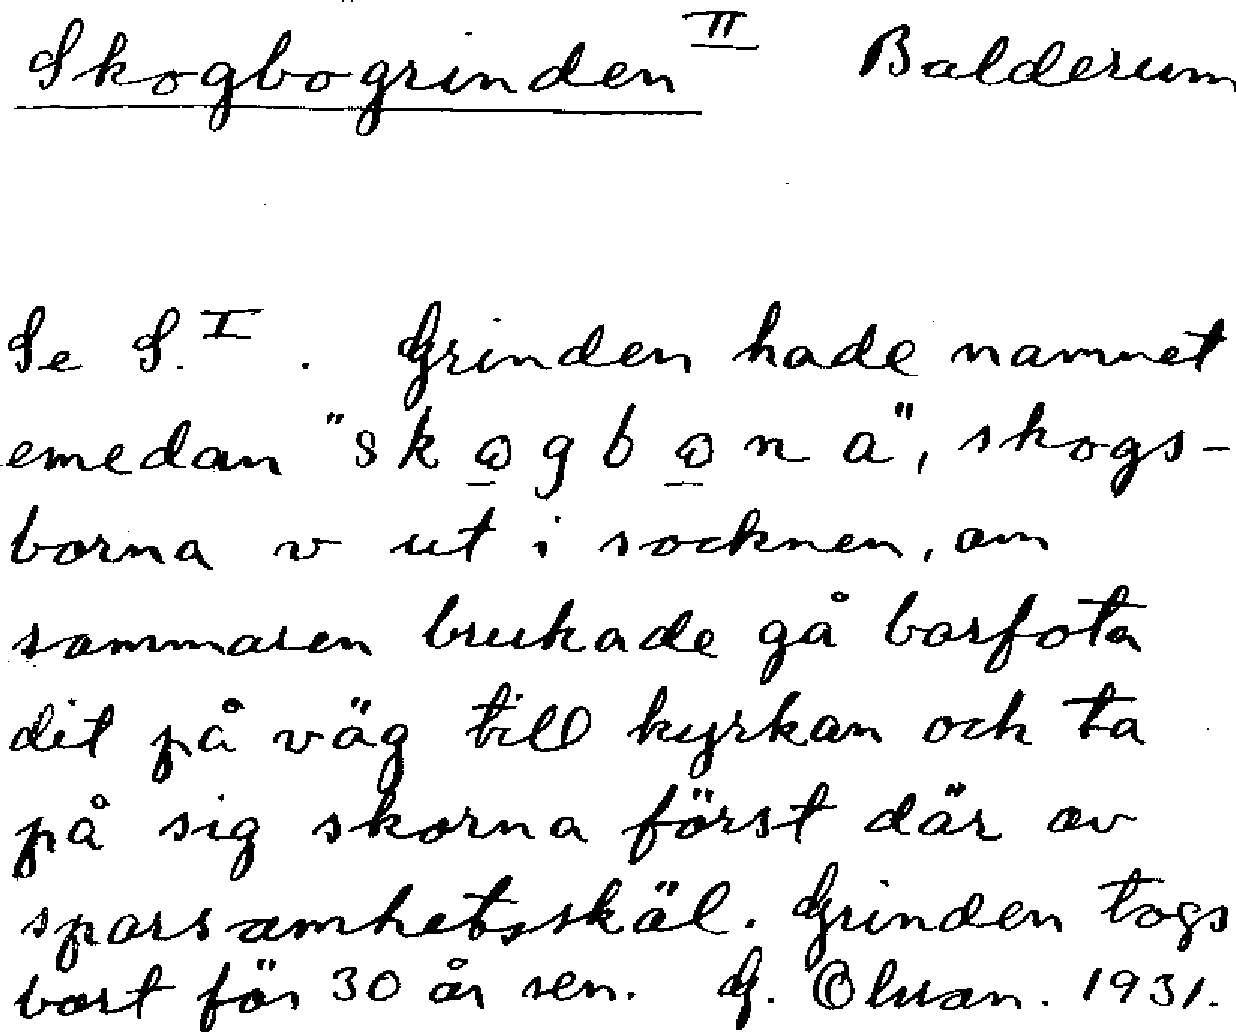 Skogbogrinden II Balderum
Se S. I . Grinden hade namnet
emedan "sko̲gbo̲na", skogs-
borna v ut i socknen, om
sommaren brukade gå barfota
dit på väg till kyrkan och ta
på sig skorna först där av
sparsamhetsskäl. Grinden togs
bort för 30 år sen. G. Olsson. 1931.